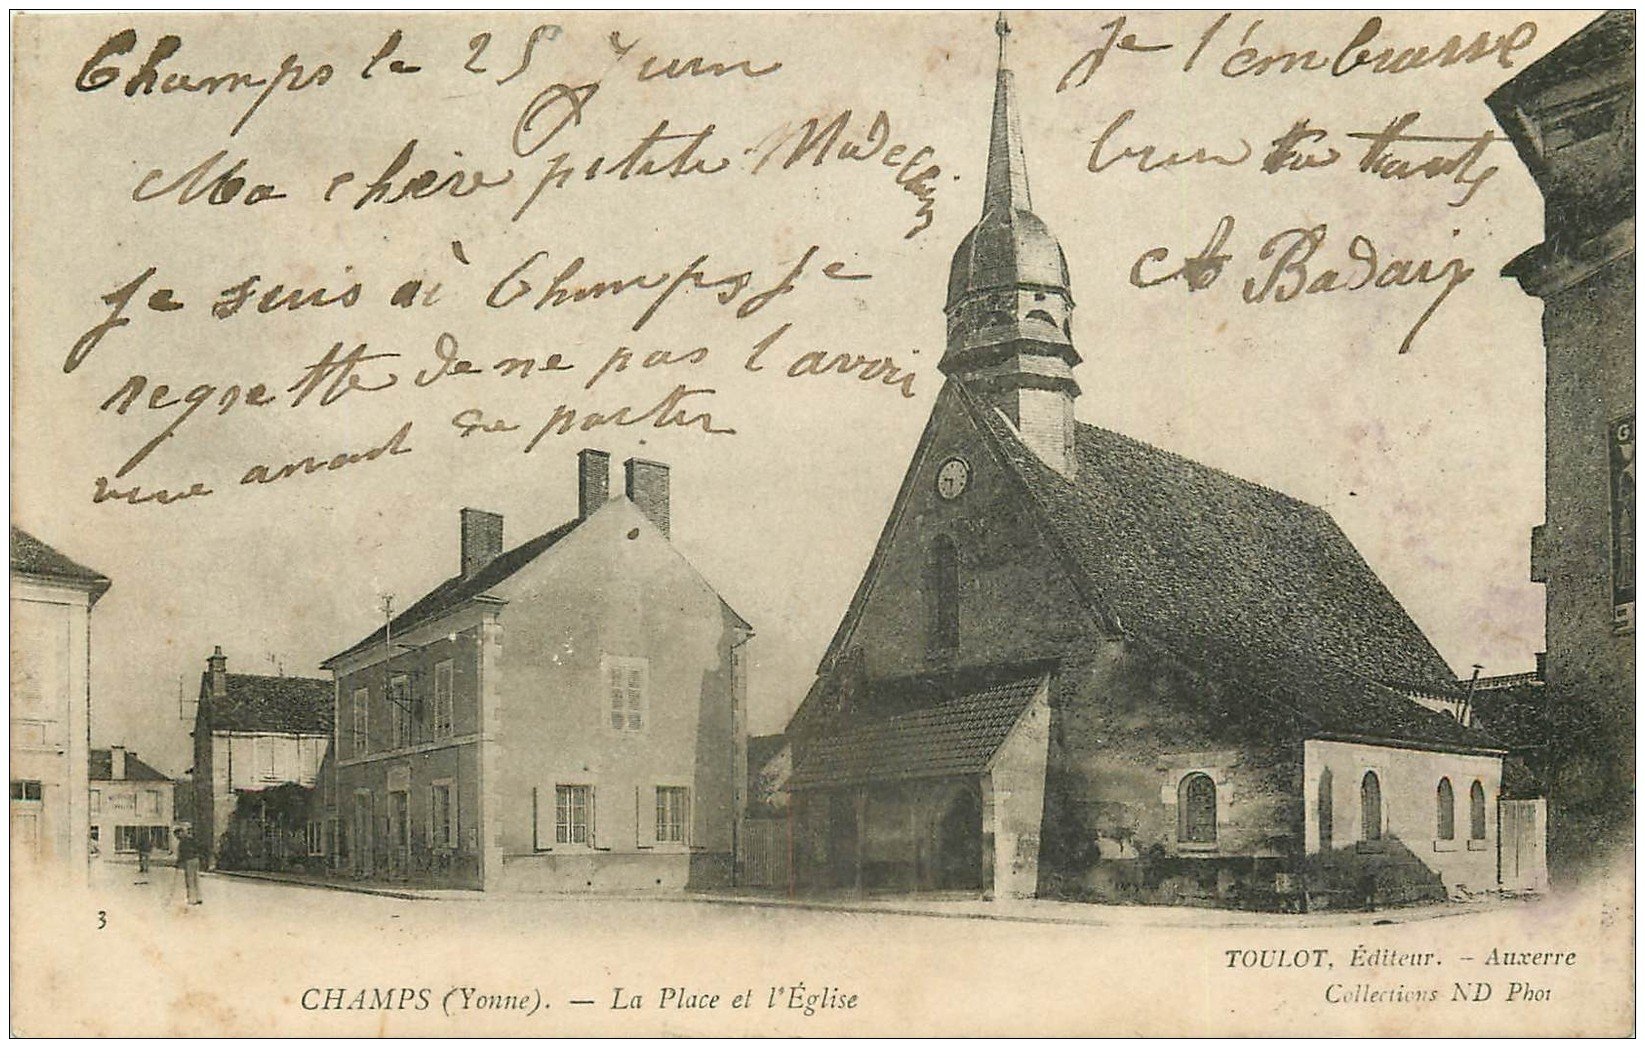 Champs le 25 Juin
Ma chère petite
Je suis à Champs Je
regrette de ne pas l'avoir
vue avant de partir
Je l'embrasse
bien ta tante
Badaip
3
CHAMPS (Yonne). — La Place et l'Église
TOULOT, Éditeur. - Auxerre
Collections ND Phot